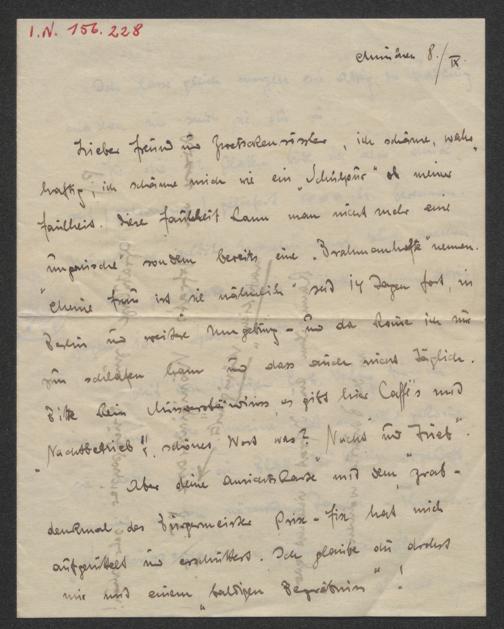 I.N. 156.228
München 8./IX.
Lieber Freund und Zwetschkenröster, ich schäme, wahr-
haftig, ich schäme mich wie ein ob meiner
Faulheit. Diese Faulheit kann man nicht mehr eine
ungarische sondern bereits eine „Brahmanhafte" nennen.
"Meine Frau ist sie nähmlich" seit 14 Tagen fort, in
Berlin und weitere Umgebung – und da komme ich nur
zum schlafen ham und dass auch nicht täglich.
Bitte kein Missverständniss, es gibt hier Caffé's und
"Nachtbetrieb"!, schönes Wort was? "Nacht und Trieb".
Aber deine Ansichtskarte mit dem „Grab-
denkmal des Bürgermeister Prix – fix hat mich
aufgerüttelt und erschüttert. Ich glaube du drohst
mir mit einem „baldigen Begräbniss"!